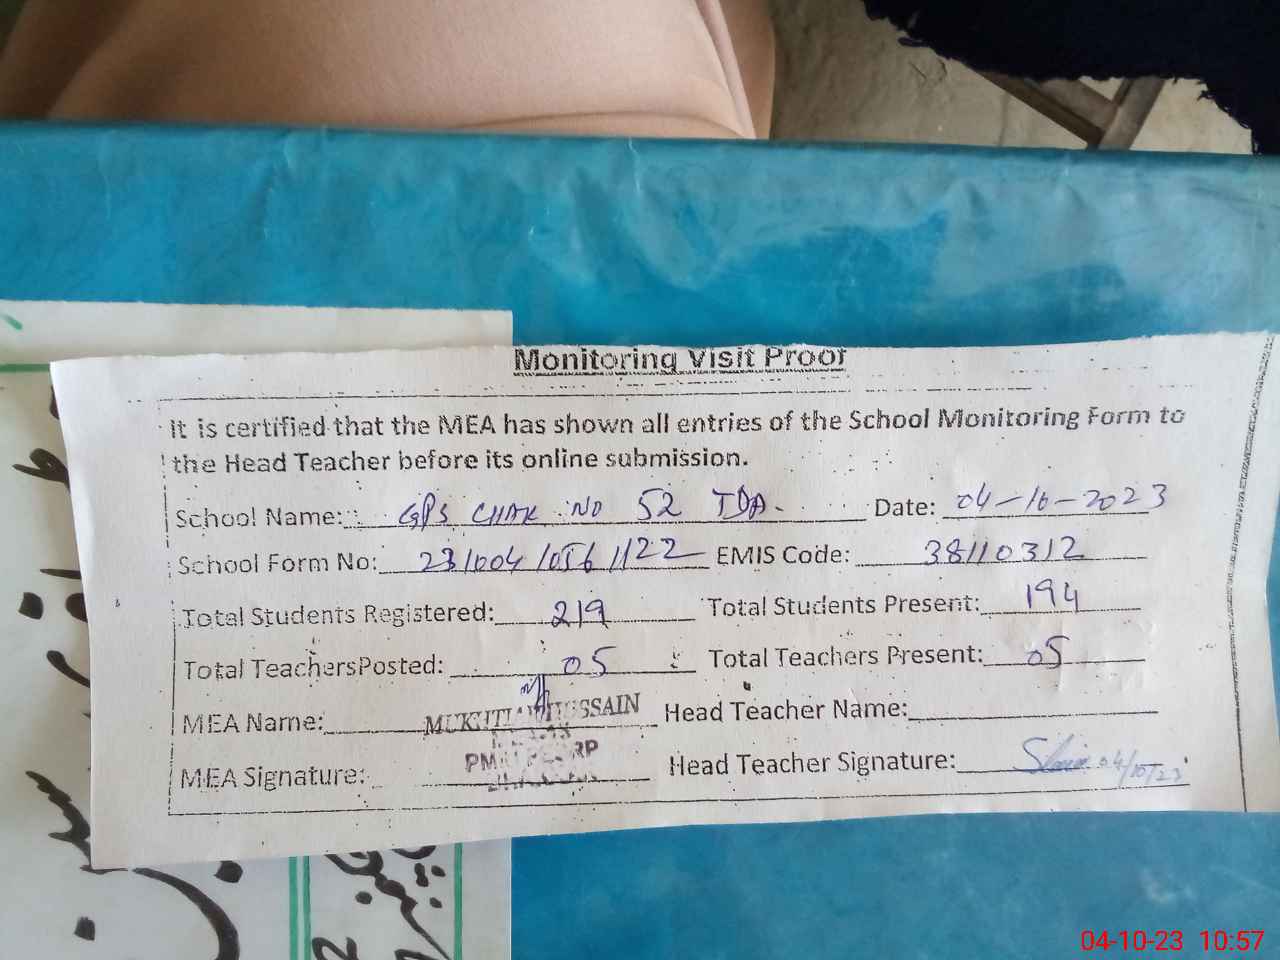 Monitoring Visit Proof
It is certified that the MEA has shown all entries of the School Monitoring Form to
the Head Teacher before its online submission.
School Name: GPS CHAK NO 52 TDA. Date: 04-10-2023
School Form No: 231004/056/122 EMIS Code: 38110312
Total Students Registered: 219 Total Students Present: 194
Total TeachersPosted: 05 Total Teachers Present: 05
MEA Name: MUKHTIAR HUSSAIN Head Teacher Name:
MEA Signature: Head Teacher Signature: 04/10/23
04-10-23 10:57